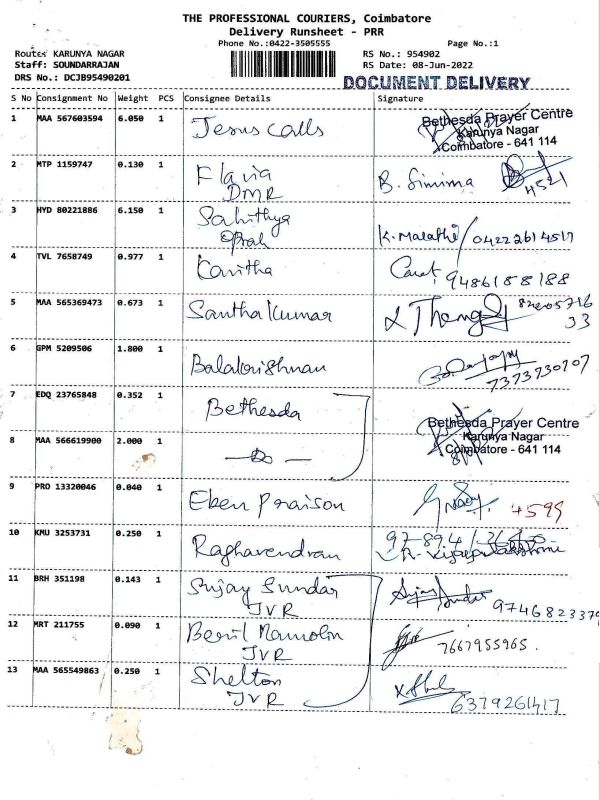 THE PROFESSIONAL COURIERS, Coimbatore
Delivery Runsheet - PRR
Phone No.:0422-3505555
Page No.:1
Route: KARUNYA NAGAR
RS No.: 954902
Staff: SOUNDARRAJAN
RS Date: 08-Jun-2022
DRS No.: DCJB95490201
DOCUMENT DELIVERY
S No Consignment No Weight PCS Consignee Details Signature
1 MAA 567603594 6.050 1 Jesus calls
Bethesda Prayer Centre
Karunya Nagar
Coimbatore - 641 114
2 MTP 1159747 0.130 1 Flavia B. Simima 4521
DMR
3 HYD 80221886 6.150 1 Sahithya K. Malathi / 04222614517
4 TVL 7658749 0.977 1 Kavitha 9486188188
5 MAA 565369473 0.673 1 Santha Kumar
6 GPM 5209506 1.800 1 Balakrishnan 7373730707
7 EDQ 23765848 0.352 1 Bethesda
Bethesda Prayer Centre
Karunya Nagar
Coimbatore - 641 114
8 MAA 566619900 2.000 1 — Do —
9 PRO 13320046 0.040 1 Eben Praison 4599
10 KMU 3253731 0.250 1 Raghavendran
11 BRH 351198 0.143 1 Sujay Sundar 9746823379
JVR
12 MRT 211755 0.090 1 7667955965.
JVR
13 MAA 565549863 0.250 1 Shelton 6379261417
JVR